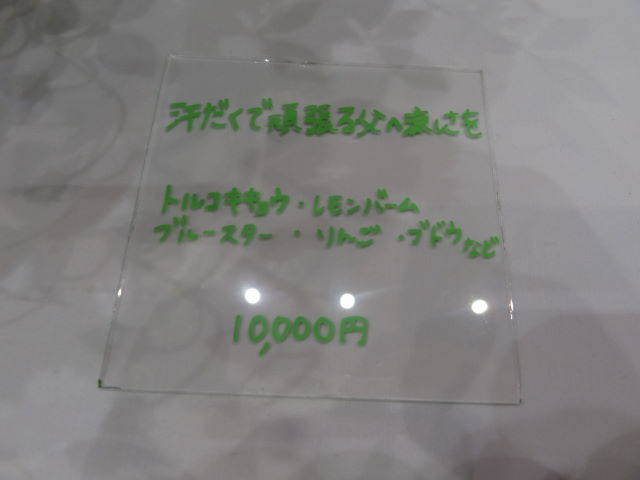 汗だくで頑張る父へ哀しさを
トルコキキョウ・レモンバーム
ブルースター・りんご・ブドウなど
10,000円